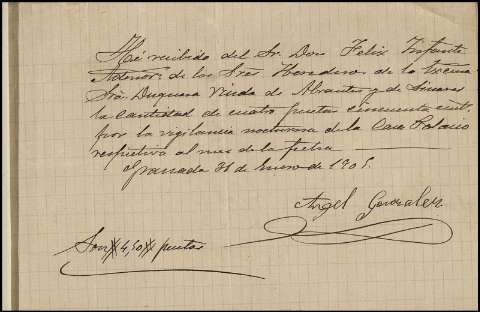 He recibido del Sr. Don Felix Infante
Admor. de los Sres Herederos de la Excma
Sra. Duquesa Viuda de Abrantes y de Linares
la cantidad de cuatro pesetas cincuenta cent.
por la vigilancia nocturna de la Casa Palacio
respectiva al mes de la fecha
Granada 31 de Enero de 1905.
Angel Gonzalez
Son # 4,50 # pesetas